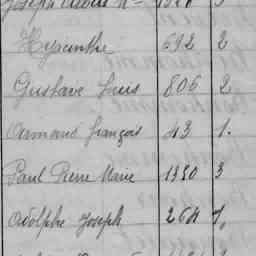 Joseph
Hyacinthe 692 2
Gustave Louis 806 2
Armand François 43 1.
Paul Pierre Marie 1350 3
Adolphe Joseph 264 1,